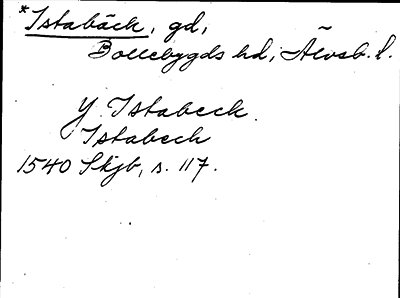 *Istabäck, gd,
Bollebygds hd, Älvsb. l.
Y Istabeck.
Istabech
1540 Skjb, s. 117.